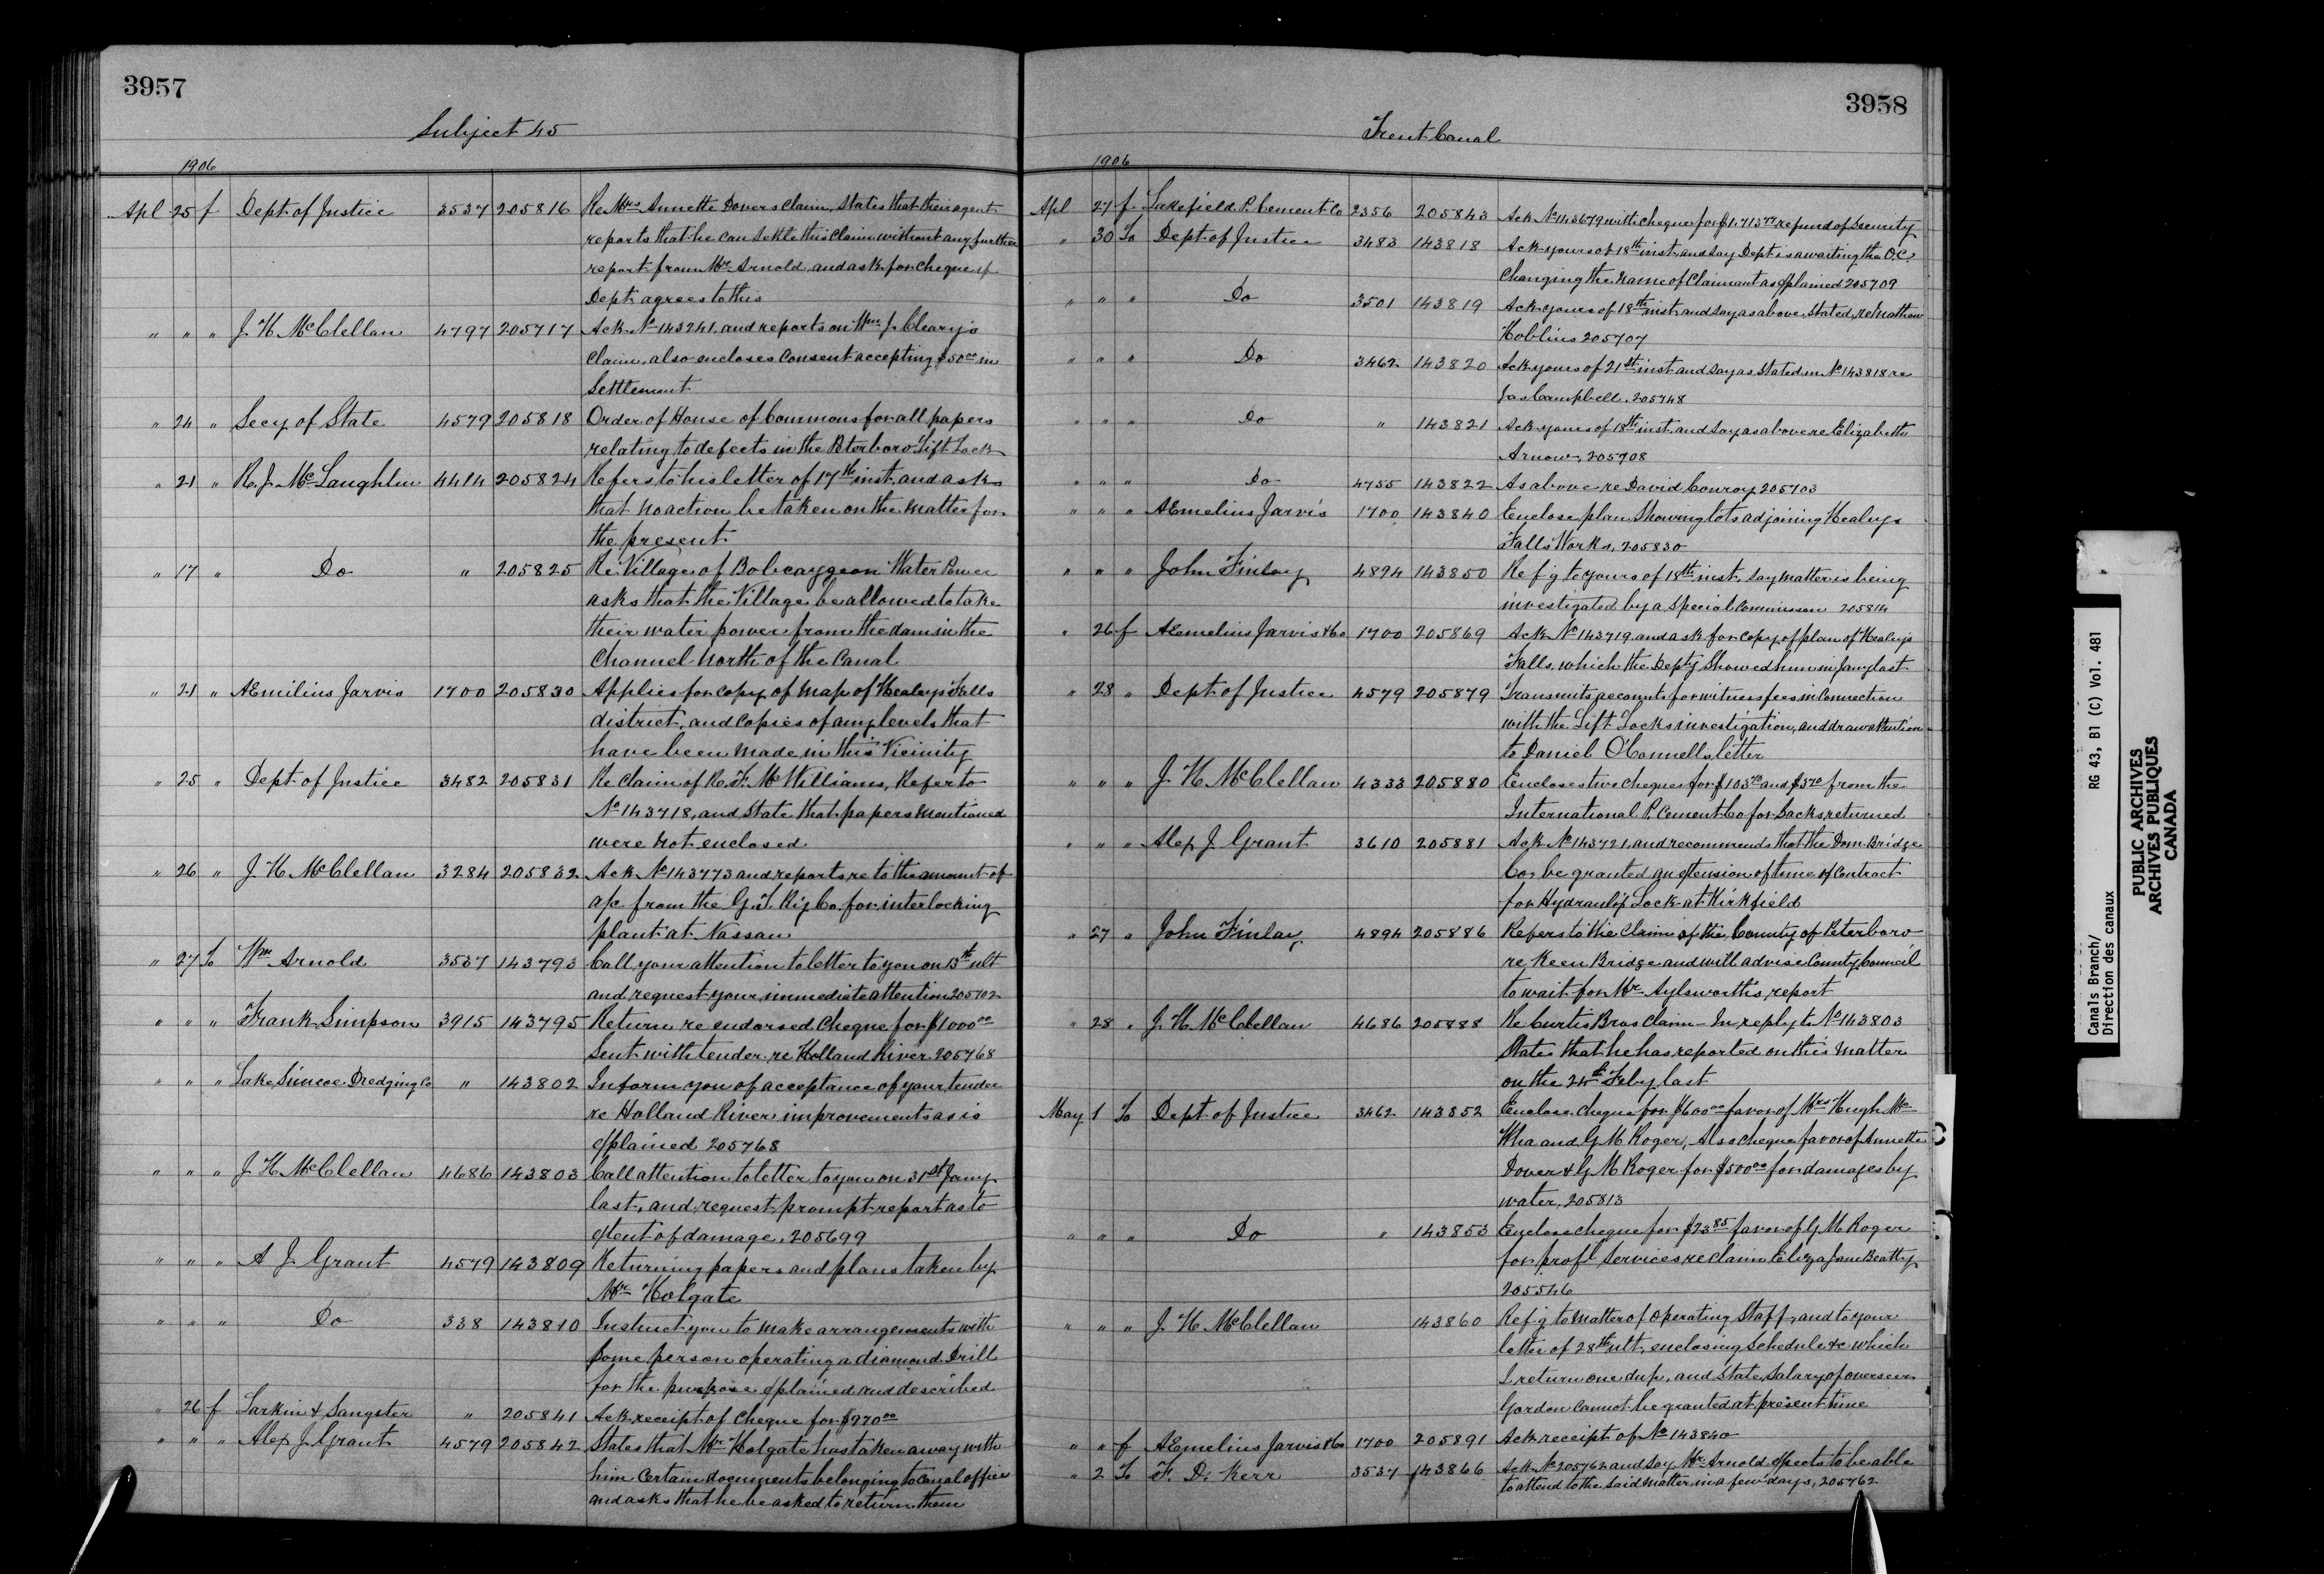 3957
Subject 45
1906
Apl 25 f Dept of Justice 3537 205816 Re Mrs Annette Dovers Claim, States that their agent
reports that he can settle this Claim without any further
report from Mr Arnold and ask for cheque if
Dept agrees to this
" " " J. H. McClellan 4797 205717 Ack No 143241 and reports on Wm J. Cleary's
Claim, also encloses Consent accepting $50 00 in
Settlement
" 24 " Secy of State 4579 205818 Order of House of Commons for all papers
relating to defects in the Peterboro Lift Lock
" 21 " R. J. McLaughlin 4414 205824 Refers to his letter of 17th inst. and asks
that no action be taken on the matter for
the present
" 17 " Do " 205825 Re Village of Bobcaygeon Water Power
asks that the Village be allowed to take
their water power from the dam in the
Channel North of the Canal
" 21 " AEmilius Jarvis 1700 205830 Applies for copy of map of Healey's Falls
district, and copies of any levels that
have been made in this Vicinity
" 25 " Dept of Justice 3482 205831 Re Claim of R. F. McWilliams, Refer to
No 143718, and State that papers mentioned
were not enclosed
" 26 " J. H. McClellan 3284 205832 Ack No 143773 and reports re to the amount of
a/c from the G. T. Ry Co. for interlocking
plant at Nassau
" 27 To Wm Arnold 3537 143793 Call your attention to letter to you on 13th ult
and request your immediate attention 205702
" " " Frank Simpson 3915 143795 Return re endorsed cheque for $1000 00
Sent with tender re Holland River 205768
" " " Lake Simcoe Dredging Co " 143802 Inform you of acceptance of your tender
re Holland River improvements as is
explained 205768
" " " J. H. McClellan 4686 143803 Call attention to letter to you on 31st Jany
last, and request prompt report as to
extent of damage. 205699
" " " A J. Grant 4579 143809 Returning papers and plans taken by
Mr Holgate
" " " Do 338 143810 Instruct you to make arrangements with
some person operating a diamond Drill
for the purpose explained and described
" 26 f Larkin & Sangster " 205841 Ack receipt of cheque for $970 00
" " " Alex J. Grant 4579 205842 States that Mr Holgate has taken away with
him certain documents belonging to Canal office
and asks that he be asked to return them
3958
Trent Canal
1906
Apl 27 f Lakefield P. Cement Co 2356 205843 Ack No 143679 with cheque for refund of Security
" 30 To Dept of Justice 3483 143818 Ack yours of 18th inst. and say Dept is awaiting the O.C.
Changing the name of Claimant as explained 205709
" " " Do 3501 143819 Ack yours of 18th inst. and say as above stated, re Mathew
Hoblins 205707
" " " Do 3462 143820 Ack yours of 21st inst and say as stated in No 143818 re
Jas Campbell. 205748
" " " Do " 143821 Ack yours of 18th inst. and say as above re Elizabeth
Arnow, 205708
" " " Do 4755 143822 As above re David Conroy 205703
" " " AEmelius Jarvis 1700 143840 Enclose plan Showing lots adjoining Healeys
Falls Works, 205830
" " " John Finlay 4894 143850 Refg to yours of 18th inst. say matter is being
investigated by a Special Commission 205814
" 26 f AEmelius Jarvis & Co 1700 205869 Ack No 143719 and ask for copy of plan of Healeys
Falls, which the Depty Showed him in Jany last
" 28 " Dept of Justice 4579 205879 Transmits accounts for witness fees in connection
with the Lift Locks investigation, and draw attention
to Daniel O'Connells letter
" " " J. H. McClellan 4333 205880 Encloses two cheques for $103 70 and $5 70 from the
International P. Cement Co for Sacks returned
" " " Alex J Grant 3610 205881 Ack No 143721 and recommends that the Dom. Bridge
Co. be granted an extension of time of Contract
for Hydraulic Lock at Kirkfield
" 27 " John Finlay 4894 205886 Refers to the Claim of the County of Peterboro
re Keen Bridge and will advise County Council
to wait for Mr Aylsworth's report
" 28 " J. H. McClellan 4686 205888 Re Curtis Bros Claim – In reply to No 143803
States that he has reported on this matter
on the 24th Feby last
May 1 To Dept of Justice 3462 143852 Enclose cheque for $600 00 favor of Mrs Hugh Mc
and G M Roger, Also cheque favor of Annette
Dover & G M Roger for $500 00 for damages by
water, 205813
" " " Do " 143853 Enclose cheque for $23 85 favor of G M Roger
for profl services re Claim Eliza Jane Beatty
205546
" " " J. H. McClellan 143860 Refg to matter of operating Staff, and to your
letter of 28th ult. enclosing Schedule &c which
I return one dup. and state Salary of overseer
Gordon cannot be granted at present time
" " f AEmelius Jarvis & Co 1700 205891 Ack receipt of No 143840
" 2 To F. D. Kerr 3537 143866 Ack No 205762 and say Mr Arnold expects to be able
to attend to the said matter in a few days, 205762
Canals Branch/
Direction des canaux
RG 43, B1 (C) Vol. 481
PUBLIC ARCHIVES
ARCHIVES PUBLIQUES
CANADA